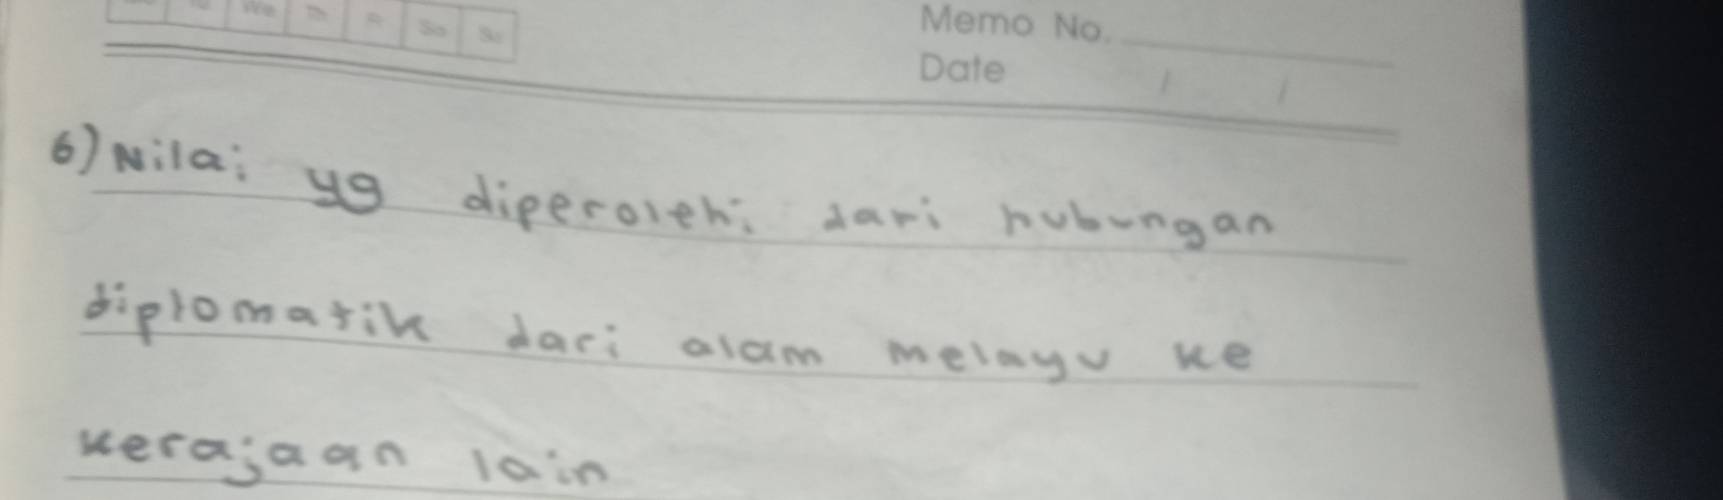 We Th F Sa Su
Memo No.
Date / /
6) Nilai yg diperolehi dari hubungan
diplomatik dari alam melayu ke
kerajaan lain